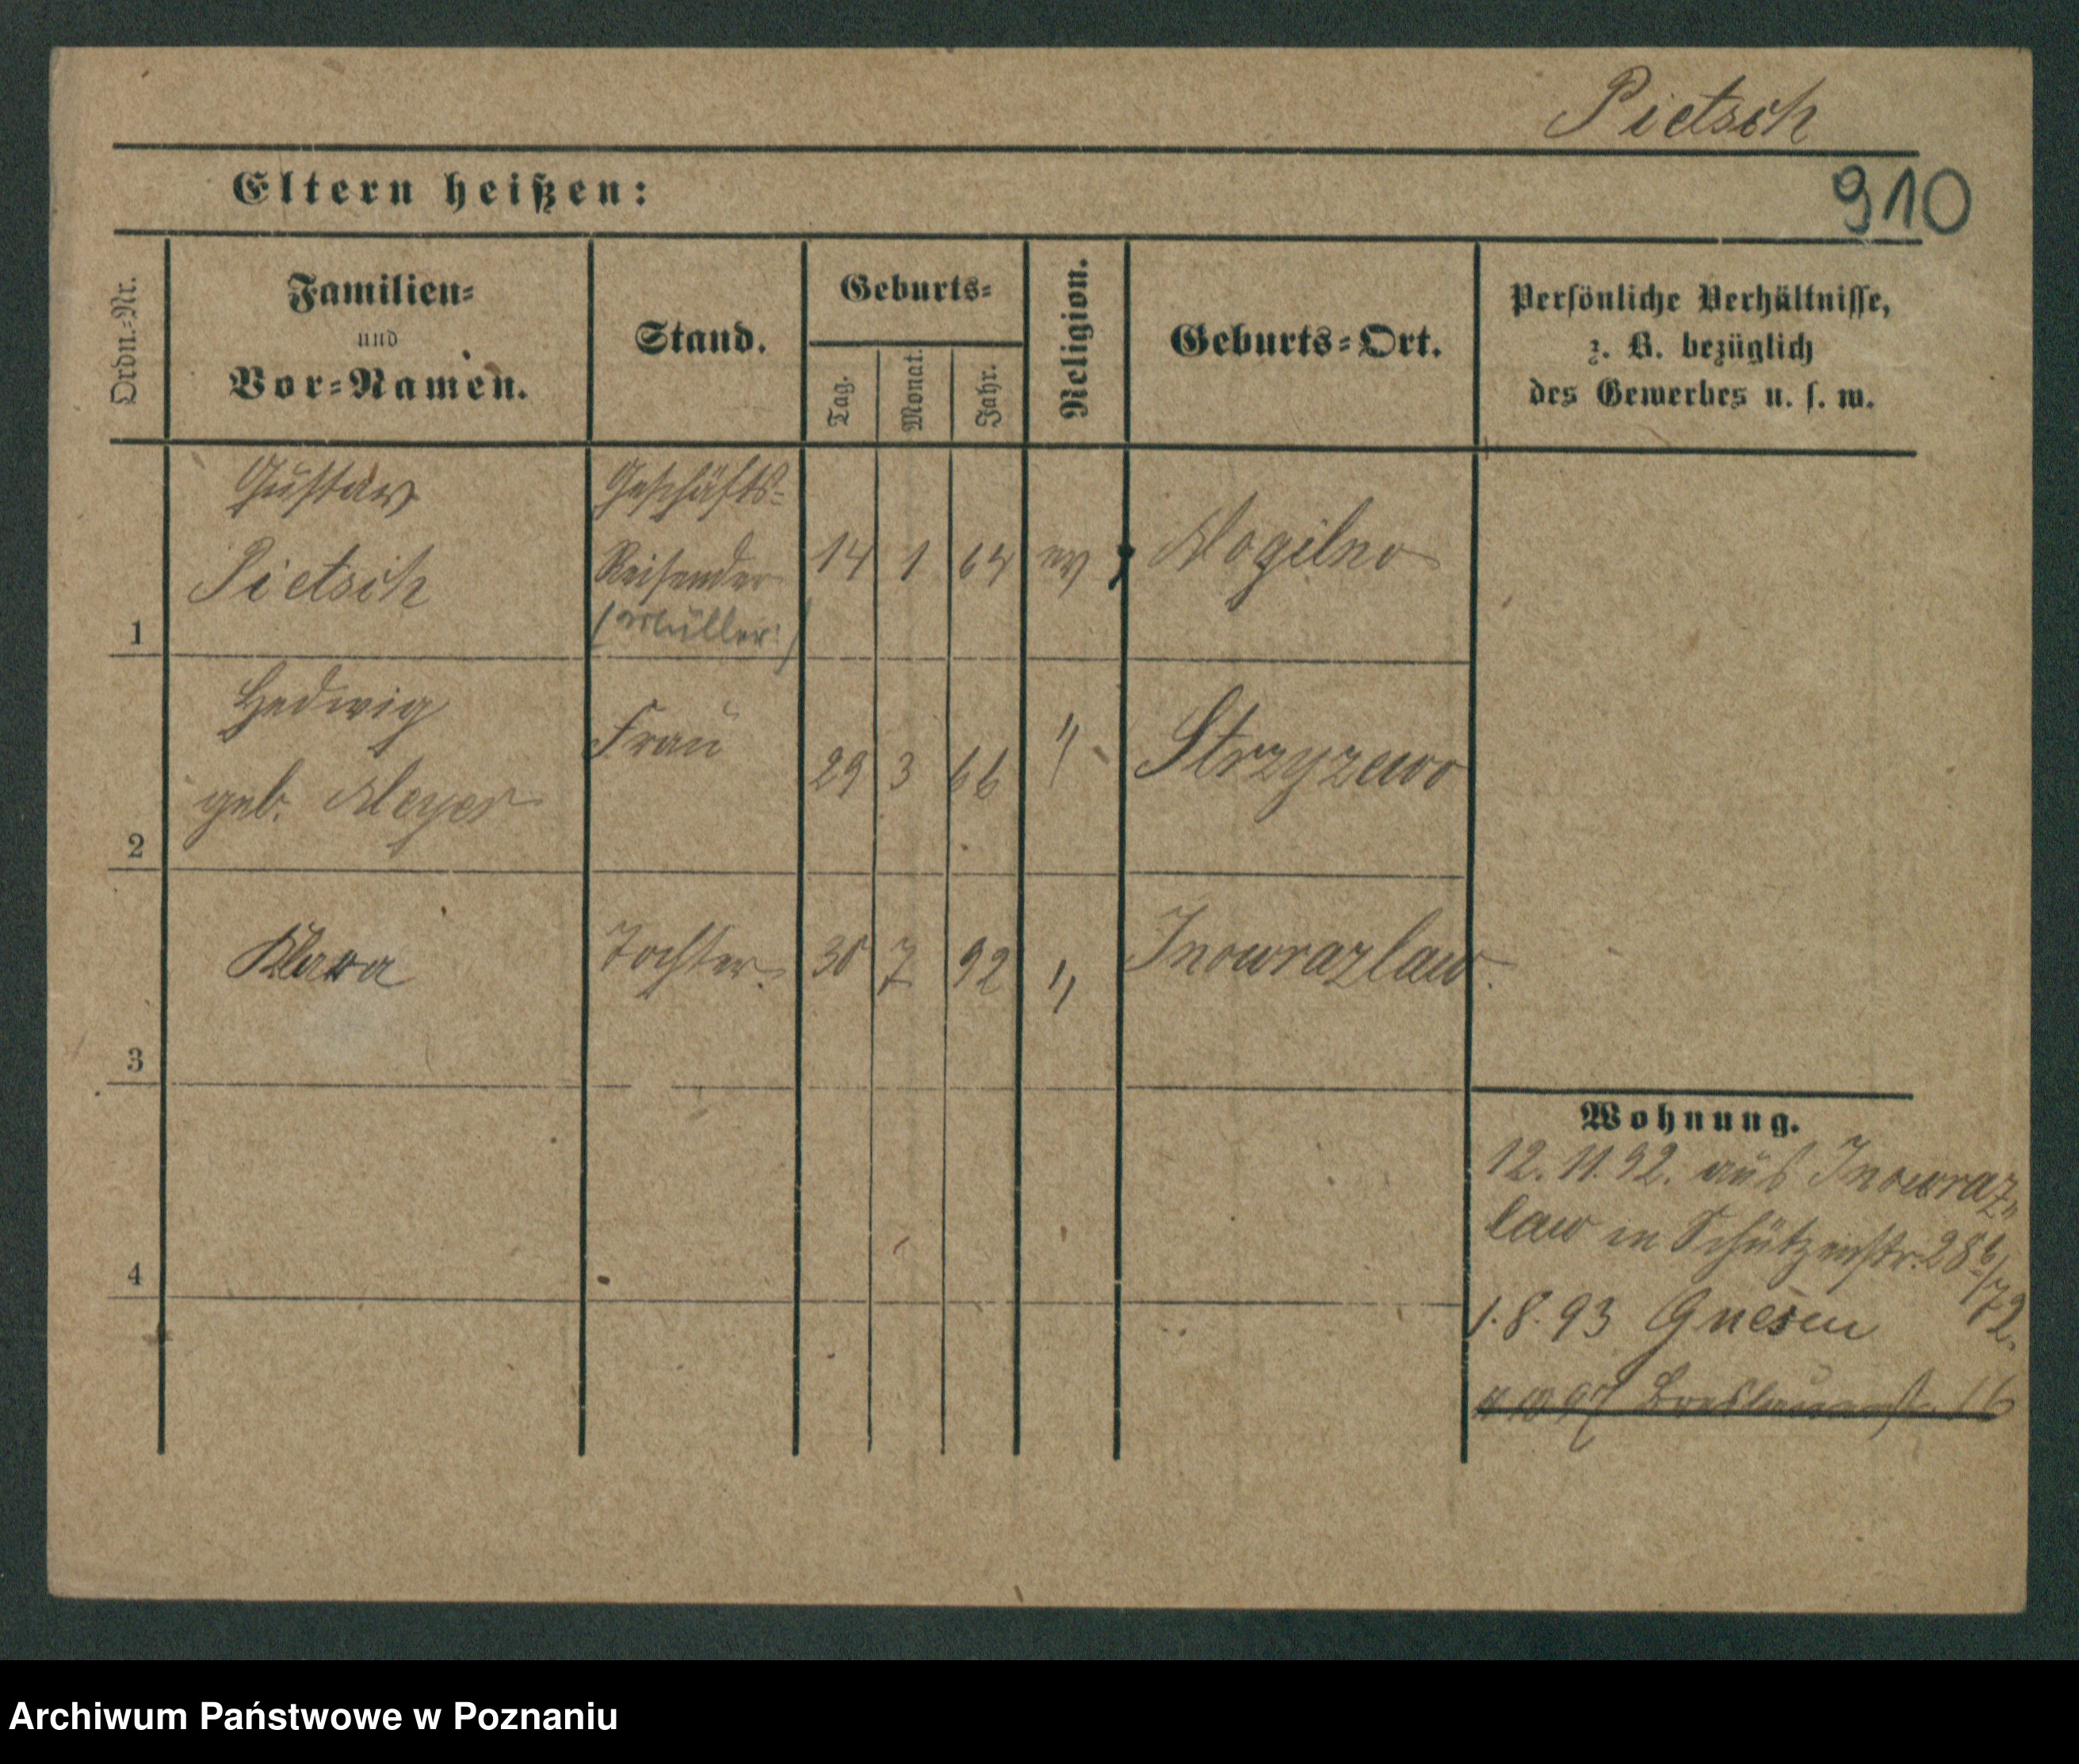 Pietsch
Eltern heißen:
910
Ordn.=Nr.
Familien=
und
Vor=Namen.
Stand.
Geburts=
Tag.
Monat.
Jahr.
Religion.
Geburts=Ort.
Persönliche Verhältnisse,
z. B. bezüglich
des Gewerbes u. s. w.
1
Gustav
Pietsch
Geschäfts-
Reisender
(Müller)
14 1 64 ev Mogilno
2
Hedwig
geb. Meyer
Frau
29 3 66 " Strzyzewo
3
Klara
Tochter.
30 7 92 " Inowrazlaw.
4
Wohnung.
12.11.92. aus Inowraz„
law in Schützenstr. 28 b/72.
1.8.93 Gnesen
97 Breslauerstr. 16
Archiwum Państwowe w Poznaniu